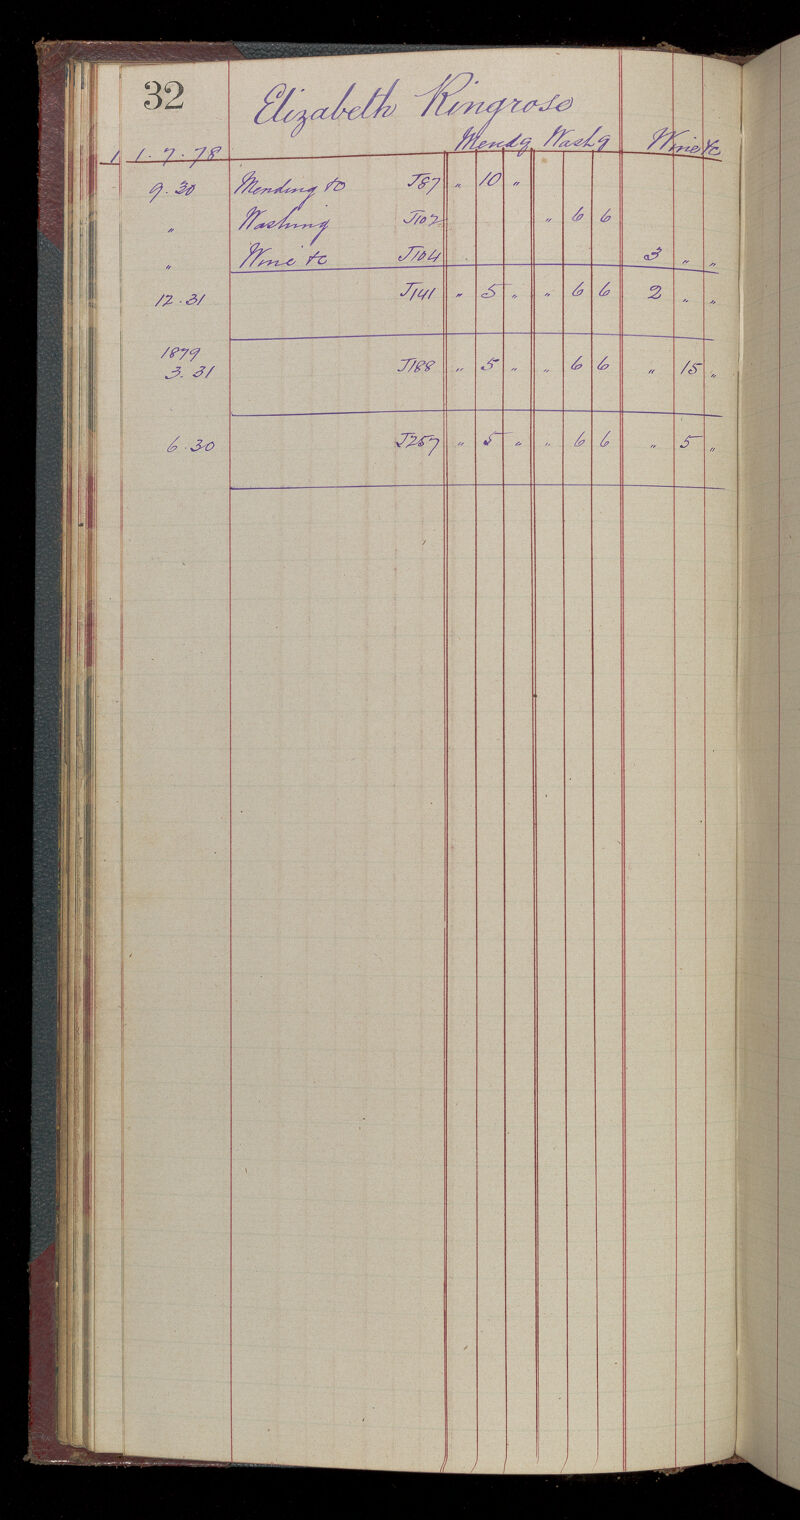 32 Elizabeth Ringrose
Mendg Washg Wine &c
1 1.7.78
9.30 Mending &c J87 " 10 "
" Washing J102 " 6 6
" Wine &c J104 3 " "
12.31 J141 " 5 " " 6 6 2 " "
1879
3.31 J188 " 5 " " 6 6 " 15 "
6.30 J257 " 5 " " 6 6 " 5 "